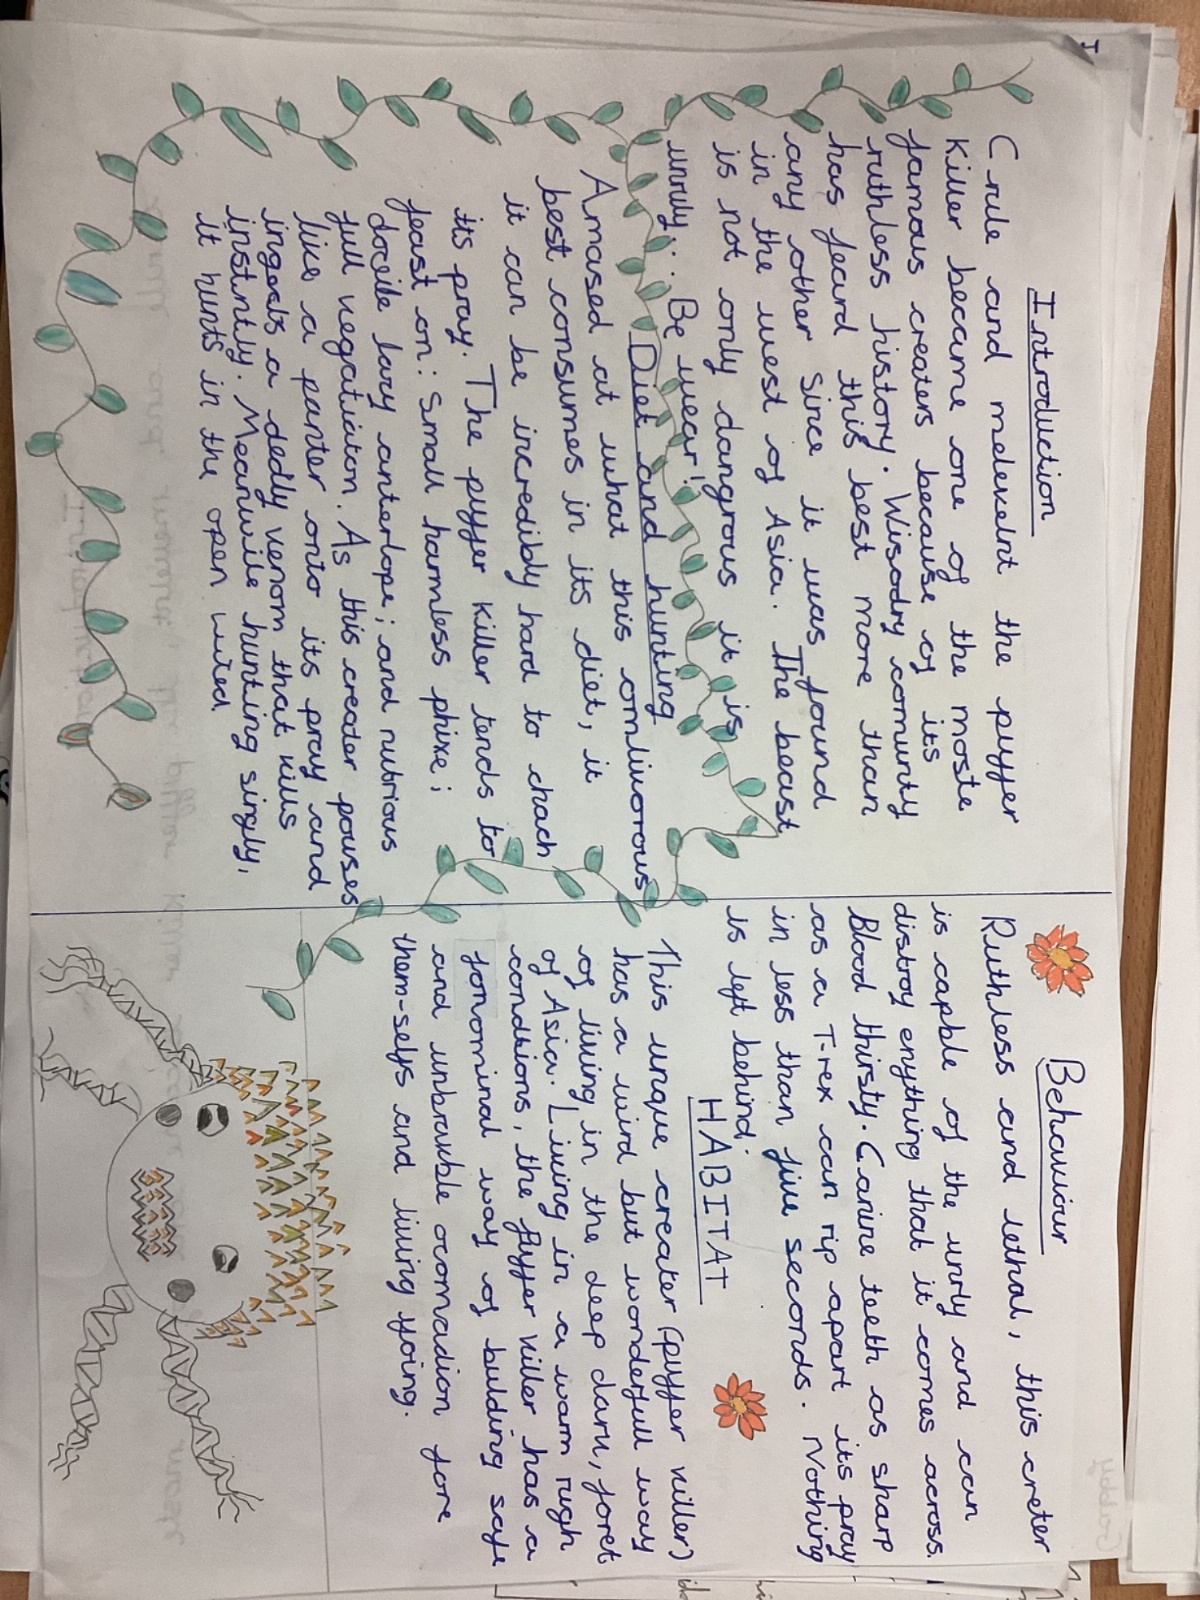 Introduction
Crule and melevelnt the pyffer
killer became one of the moste
famous creaters because of its
ruthless history. Wisodry comunty
has feard this best more than
any other since it was found
in the west of Asia. The beast
is not only dangrous it is
unruly... Be wear!
Diet and hunting
Amased at what this omlivorous
best consumes in its diet, it
it can be incredibly hard to chach
its pray. The pyffer killer tends to
feast on: small harmless phixe;
docile lary anterlope; and nutrious
full negatiaton. As this creater pouses
like a panter onto its pray and
ingests a dedly venom that kills
instintly. Meanwile hunting singly,
it hunts in the open wiled
Behaviour
Ruthless and lethal, this creter
is capble of the unrly and can
distroy enything that it comes across.
Blood thirsty. Canine teeth as sharp
as a T-rex can rip apart its pray
in less than five seconds. Nothing
is left behind.
HABITAT
This unque creater (pyffer killer)
has a wird but wonderfull way
of living in the deep darn, foret
of Asia. Living in a warm rugh
condtions, the pyffer killer has a
fonominal way of bulding safe
and unbrakble acomadion fore
them-selfs and living yoing.